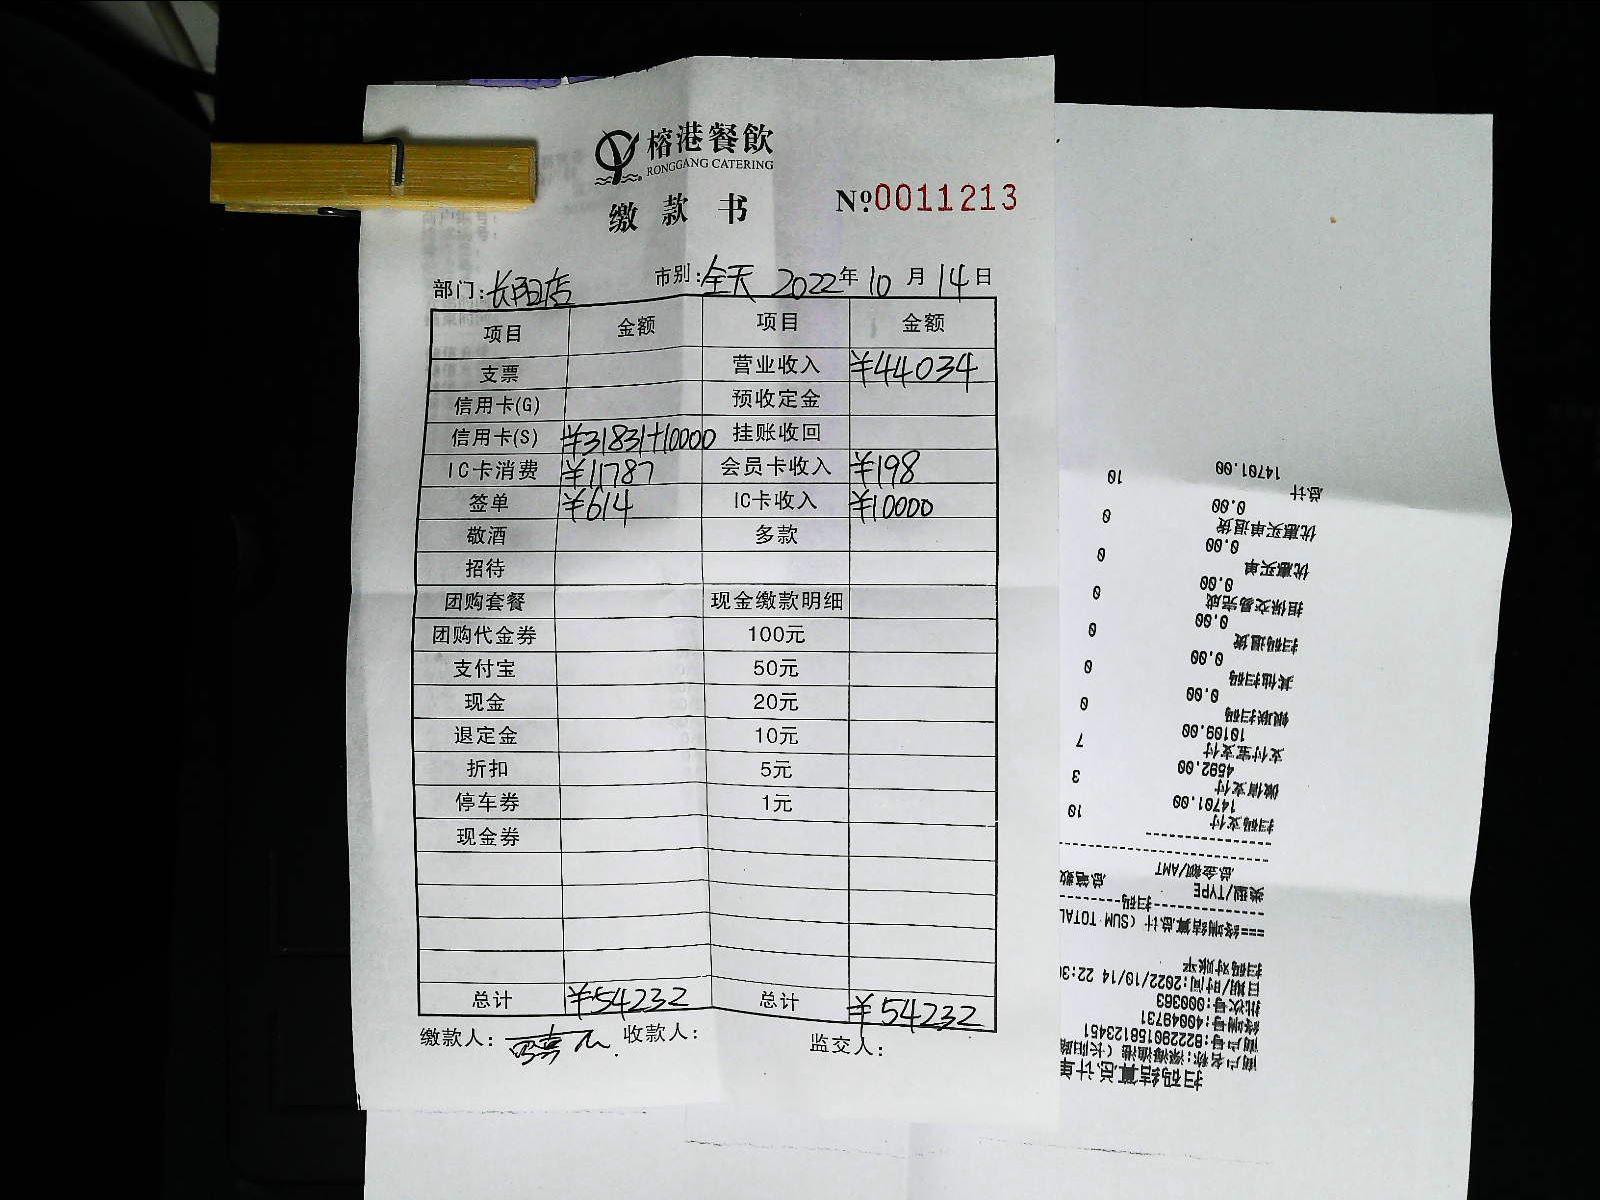 榕港餐飲
RONGGANG CATERING
缴款书
№0011213
部门:长阳店 市别:全天 2022年10月14日
项目 金额 项目 金额
支票 营业收入 ¥44034
信用卡(G) 预收定金
信用卡(S) ¥31831+10000 挂账收回
IC卡消费 ¥11787 会员卡收入 ¥198
签单 ¥614 IC卡收入 ¥10000
敬酒 多款
招待
团购套餐 现金缴款明细
团购代金券 100元
支付宝 50元
现金 20元
退定金 10元
折扣 5元
停车券 1元
现金券
总计 ¥54232 总计 ¥54232
缴款人: 收款人: 监交人:
扫码结算总计单
商户名称:深海渔港(长阳路
商户号:822290158123451
终端号:40049731
批次号:000363
日期/时间:2022/10/14 22:30
扫码对账平
===终端结算总计(SUM TOTAL
扫码
类型/TYPE 总笔数
总金额/AMT
扫码支付 10
14701.00
微信支付 3
4592.00
支付宝支付 7
10109.00
银联扫码 0
0.00
其他扫码 0
0.00
扫码退货 0
0.00
担保交易完成 0
0.00
优惠买单 0
0.00
优惠买单退货 0
0.00
总计 10
14701.00